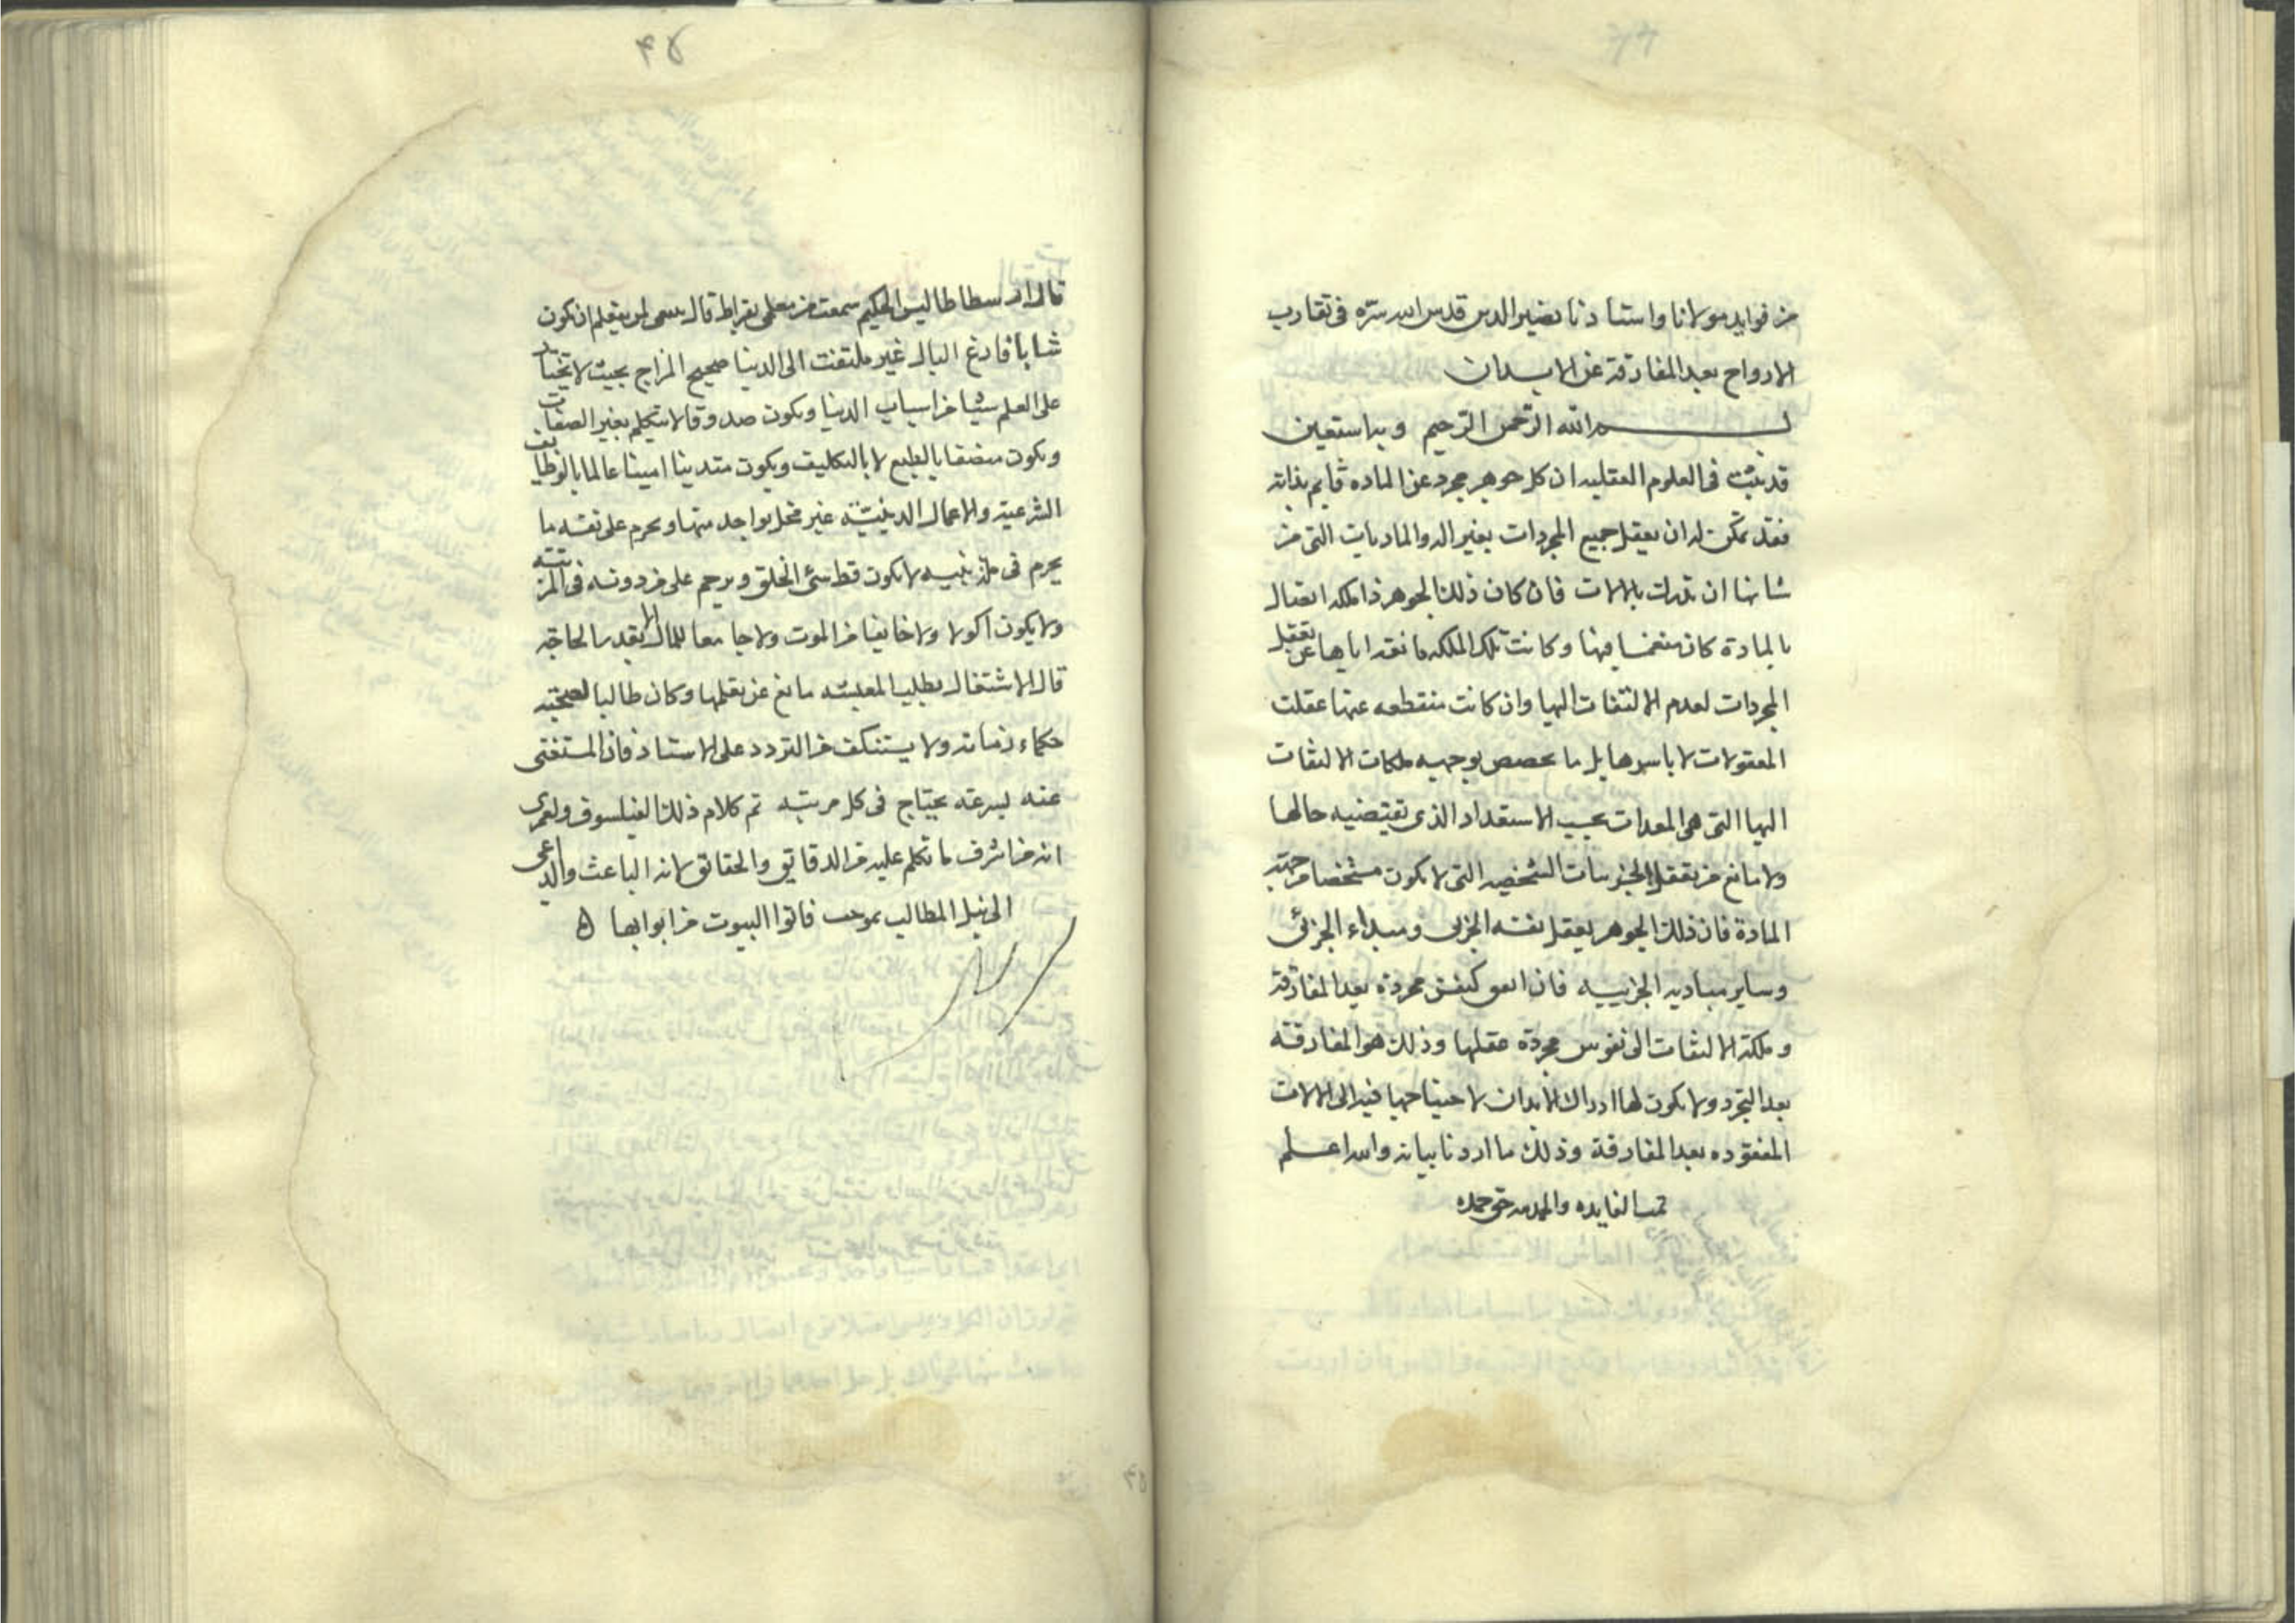 من فوايد مولانا واستاذنا نصير الدين قدس الله سره فى تقارب
الارواح بعد المفارقة عن الابدان
بسم الله الرحمن الرحيم وبه استعين
قد ثبت فى العلوم العقليه ان كل جوهر مجرد عن الماده قايم بذاته
فقد تمكن له ان يعقل جميع المجردات بغير اله والماديات التى من
شانها ان تدرك بالالات فان كان ذلك الجوهر ذا ملكه اتصال
بالمادة كان منغمسا فيها وكانت تلك الملكه مانعه اياها عن تعقل
المجردات لعدم الالتفات اليها وان كانت منقطعه عنها عقلت
المعقولات لا باسرها بل ما يخصص بوجهيه ملكات الالتفات
اليها التى هى المعدات بحسب الاستعداد الذى تقتضيه حالها
ولا مانع من تعقل الجزييات الشخصيه التى لا يكون مشخصا من جهة
المادة فان ذلك الجوهر يعقل نفسه الجزيى ومبداءه الجزئى
وساير مباديه الجزييه فان اتفق كنفس مجردة بعد المفارقة
وملكة الالتفات الى نفوس مجردة عقلها وذلك هو المفارقه
بعد التجرد ولا يكون لها ادراك الابدان لاحتياجها فيه الى الالات
المفقوده بعد المفارقة وذلك ما اردنا بيانه والله اعلم
تمت الفايده والحمد لله حق حمده
٤٥
قال ارسطاطاليس الحكيم سمعت من معلمى بقراط قال ينبغى لمن يتعلم ان يكون
شابا فارغ البال غير ملتفت الى الدنيا صحيح المزاج بحيث لا يختار
على العلم شيئا من اسباب الدنيا ويكون صدوقا لا يتكلم بغير الصفات
ويكون منصفا بالطبع لا بالتكليف ويكون متدينا امينا عالما بالوظايف
الشرعية والاعمال الدينيه غير مخل بواجد منها ويحرم على نفسه ما
يحرم فى ملة نبيه لا يكون قط سئ الخلق ويرحم على من دونه فى المرتبه
ولا يكون اكولا ولا خايفا من الموت ولا جامعا للمال الا بقدر الحاجة
قال الاشتغال بطلب المعيشه مانع عن تعلمها وكان طالبا لصحبة
حكماء زمانه ولا يستنكف من التردد على الاستاذ فان المستغنى
عنه لسرعته يحتاج فى كل مرتبه تم كلام ذلك الفيلسوف ولعمرى
انه من اشرف ما تكلم عليه من الدقايق والحقائق لانه الباعث والداعى
الى نيل المطالب بموجب فاتوا البيوت من ابوابها